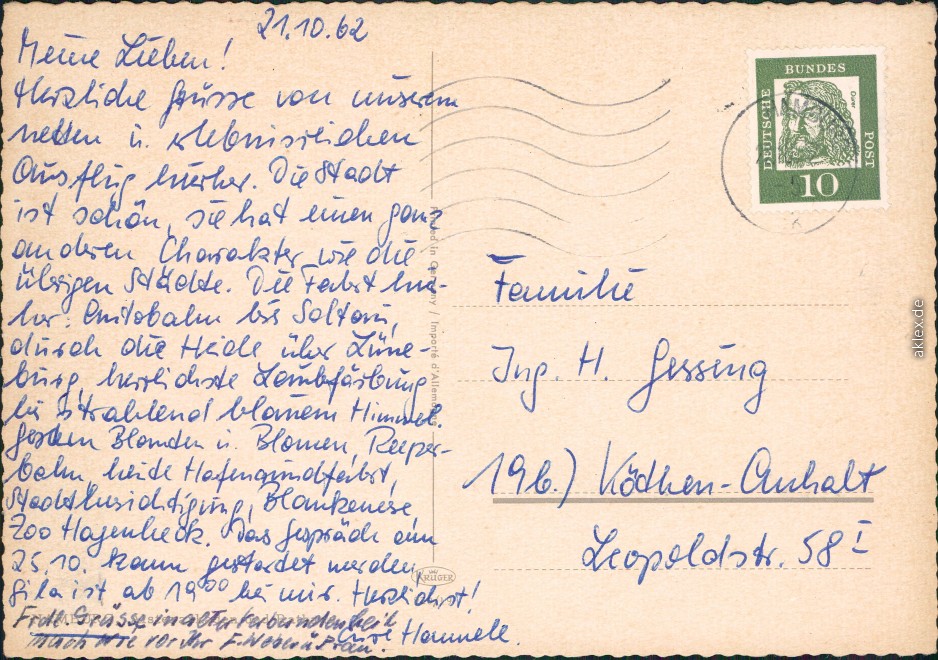 21.10.62
Meine Lieben!
Herzliche Grüsse von unserem
netten u. erlebnisreichen
Ausflug hierher. Die Stadt
ist schön, sie hat einen ganz
anderen Charakter wie die
übrigen Städte. Die Fahrt hie-
her: Autobahn bis Soltau,
durch die Heide über Lüne-
burg, herrlichste Laubfärbung
bei strahlend blauem Himmel.
Gestern Blomden u. Blomen, Reeper-
bahn, heute Hafenrundfahrt,
Stadtbesichtigung, Blankenese,
Zoo Hagenbeck. Das Gespräch am
25.10. kann gestartet werden,
Gila ist ab 19⁰⁰ bei mir. Herzlichst!
Eure Hannele.
Frdl. Grüsse in alter Verbundenheit
nach wie vor Ihr F. Weber u. Frau.
Printed in Germany / Importé d'Allemagne
KRÜGER
DEUTSCHE
BUNDES
POST
Dürer
10
Familie
Ing. H. Gessing
19b.) Köthen-Anhalt
Leopoldstr. 58 I
aklex.de